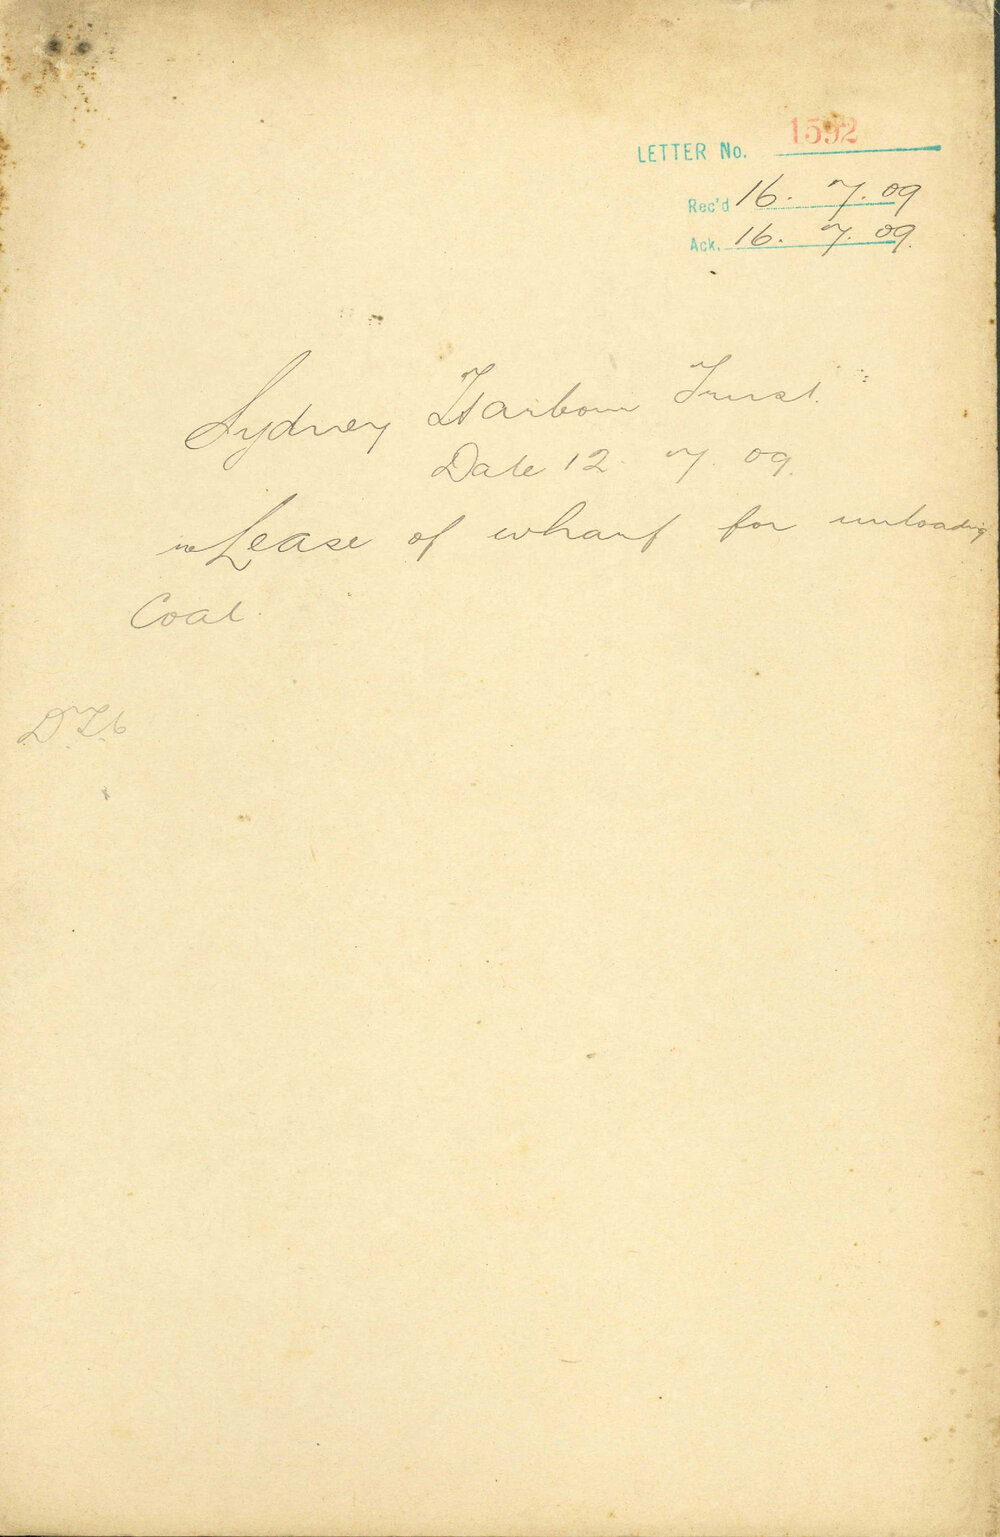 LETTER No. 1592
Rec'd 16. 7. 09
Ack. 16. 7. 09.
Sydney Harbour Trust.
Date 12. 7. 09.
re Lease of wharf for unloading
Coal.